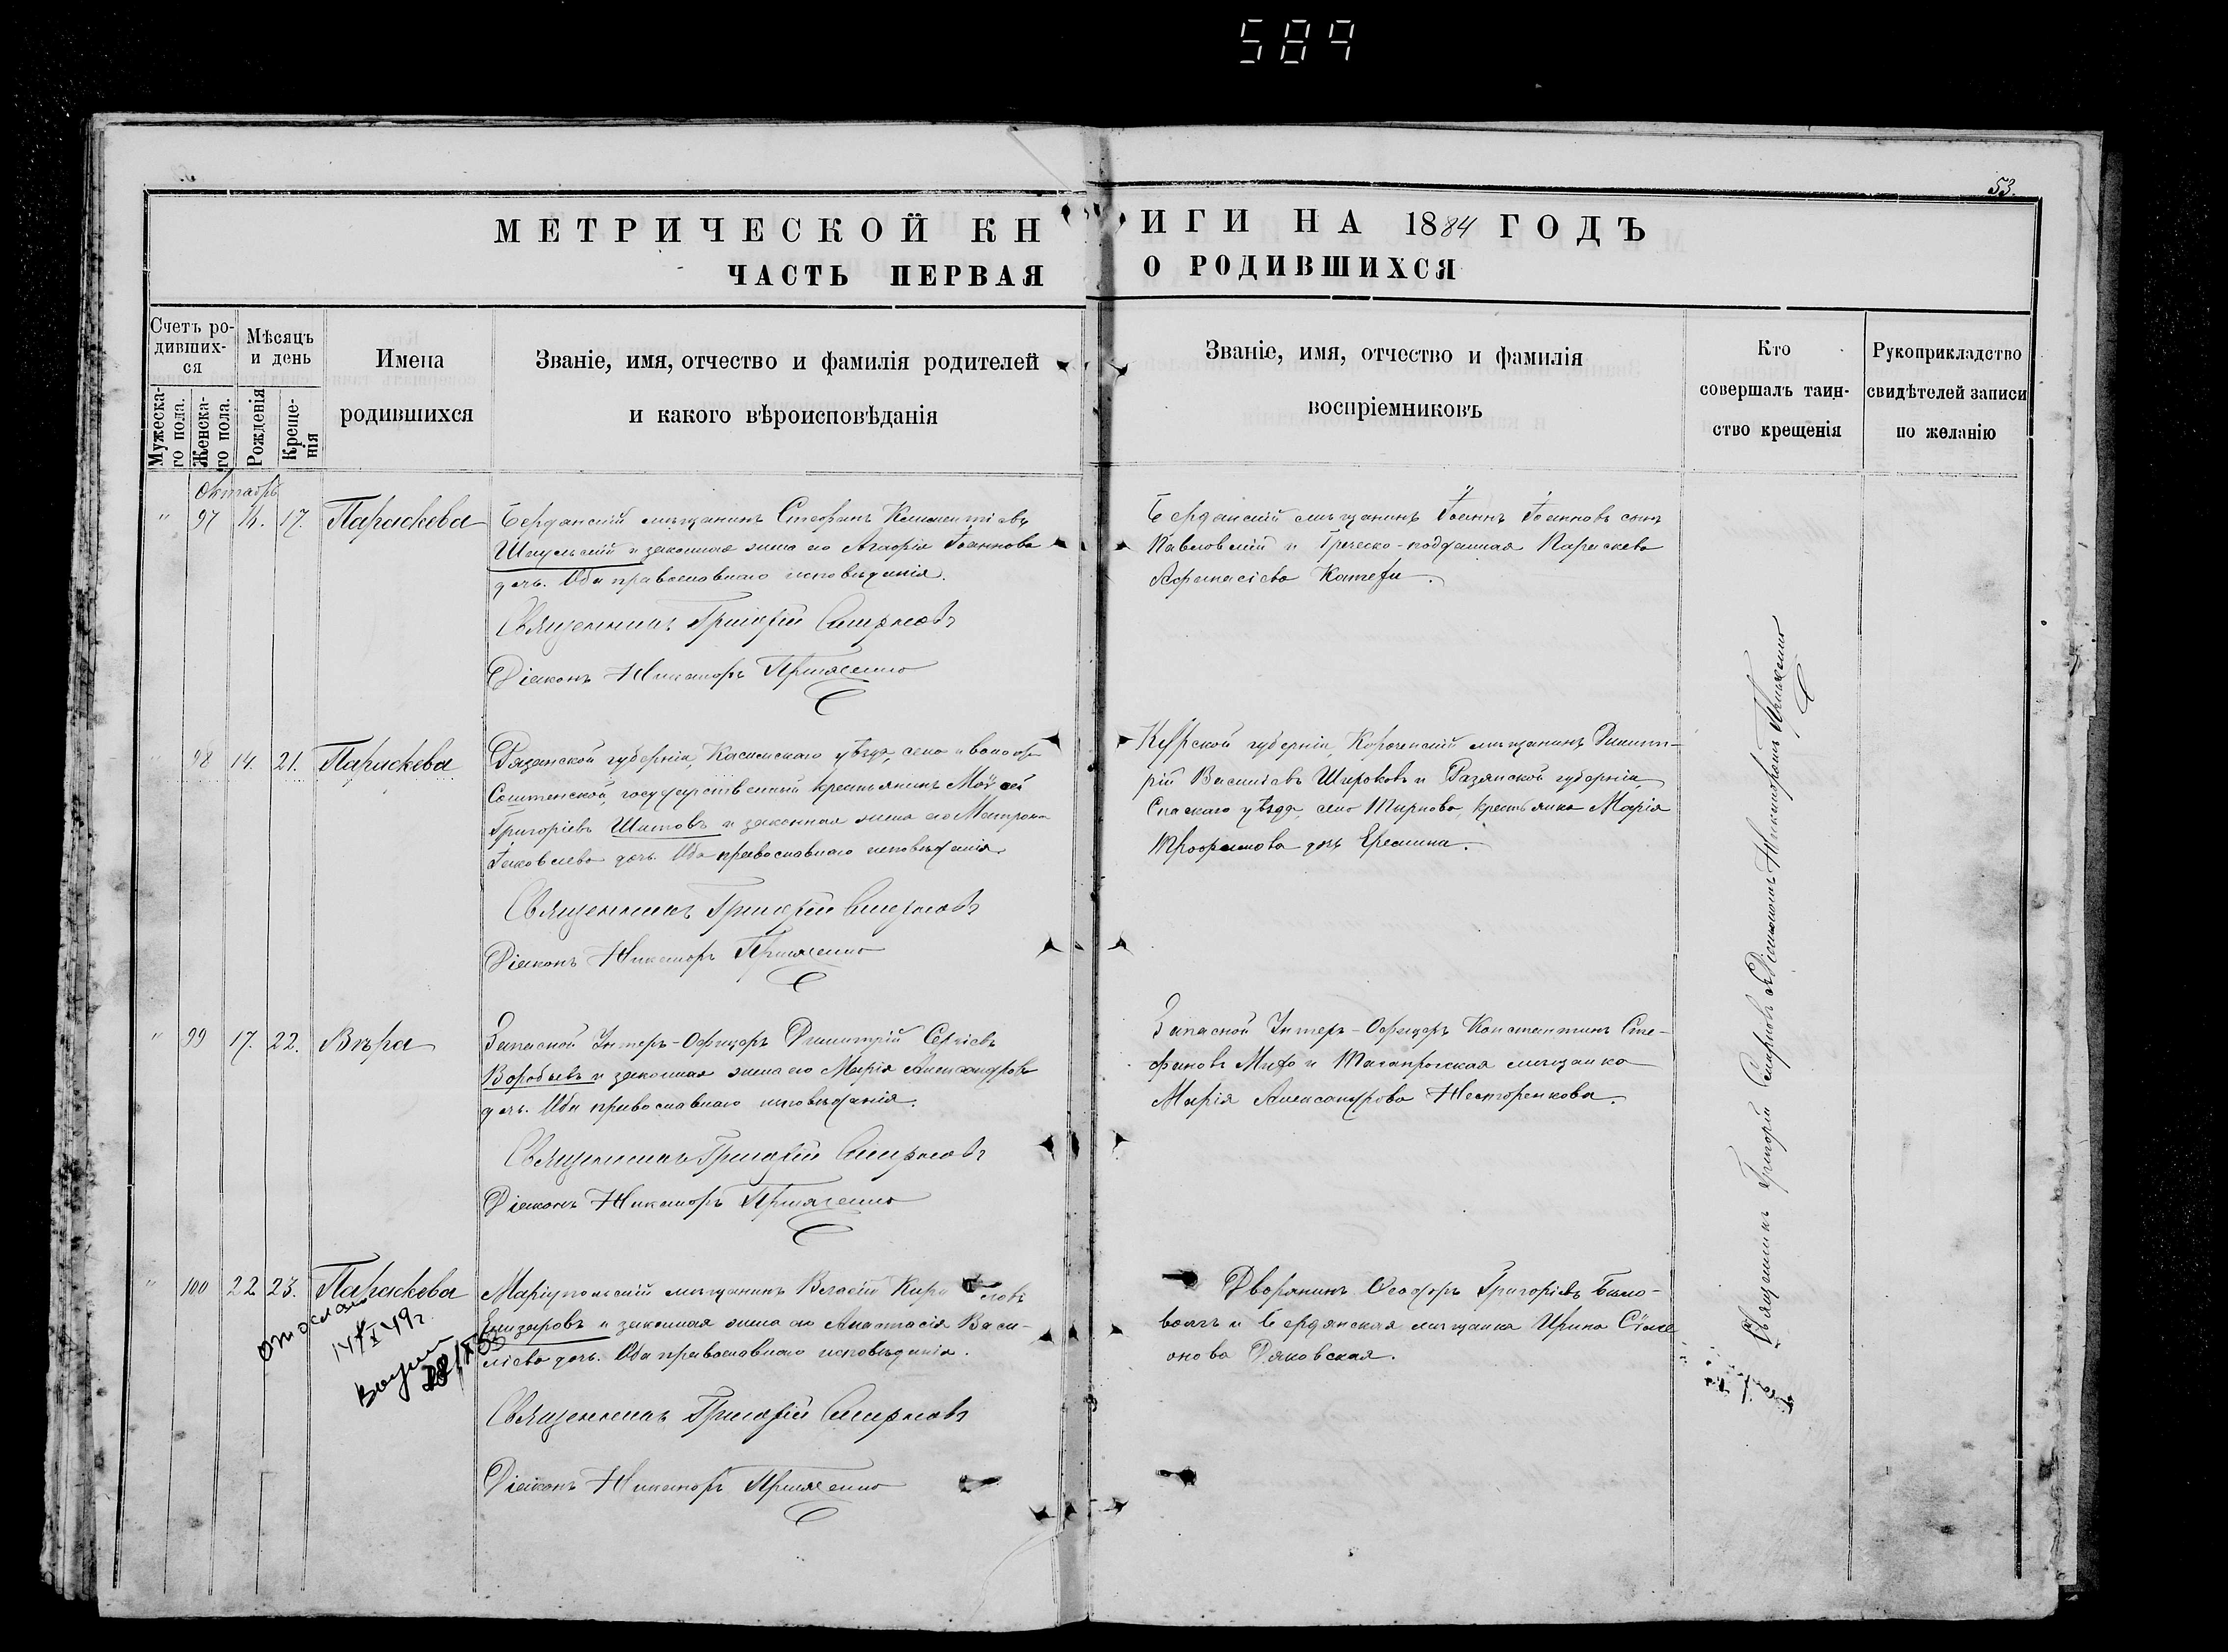 589
53.
МЕТРИЧЕСКОЙ КНИГИ НА 1884 ГОДЪ
ЧАСТЬ ПЕРВАЯ О РОДИВШИХСЯ
Счетъ ро-
дивших-
ся
Мужеска-
го пола.
Женска-
го пола.
Мѣсяцъ
и день
Рожденія
Креще-
нія
Имена
родившихся
Званіе, имя, отчество и фамилія родителей
и какого вѣроисповѣданія
Званіе, имя, отчество и фамилія
воспріемниковъ
Кто
совершалъ таин-
ство крещенія
Рукоприкладство
свидѣтелей записи
по желанію
Октабрь
" 97 17. Параскева
Бердянскій мѣщанинъ Стефанъ Климентіевъ
и законная жена его Агафія Іоаннова
дочь. Оба православнаго исповѣданія.
Священникъ Григорій Смирновъ
Діаконъ Никаноръ
Бердянскій мѣщанинъ Іоаннъ Іоанновъ сынъ
Павловскій и Греческо-подданная Параскева
Афанасіева
98 14. 21. Параскева
Рязанской губерніи, Касимскаго уѣзда, села и волости
государственный крестьянинъ Моѵсей
Григоріевъ Шатовъ и законная жена его Матрона
Іаковлева дочь. Оба православнаго исповѣданія.
Священникъ Григорій Смирновъ
Діаконъ Никаноръ
Курской губерніи Короченскій мѣщанинъ Димит-
рій Василіевъ Широковъ и Рязанской губерніи
Спаскаго уѣзда, села Тырнова, крестьянка Марія
Трофимова дочь Еремина.
" 99 17. 22. Вѣра
Запасной Унтеръ-Офицеръ Димитрій Сергіевъ
Воробьевъ и законная жена его Марія Александрова
дочь. Оба православнаго исповѣданія.
Священникъ Григорій Смирновъ
Діаконъ Никаноръ
Запасной Унтеръ-Офицеръ Константинъ Сте-
фановъ и Таганрогская мѣщанка
Марія Александрова Несторенкова.
" 100 22 23. Параскева
Маріупольскій мѣщанинъ Власій
Елизаровъ и законная жена его Анастасія Васи-
ліева дочь. Оба православнаго исповѣданія.
Священникъ Григорій Смирновъ
Діаконъ Никаноръ
Дворянинъ Ѳеодоръ Григоріевъ Было-
и Бердянская мѣщанка Ирина Сѵме
онова Дяковская.
отослано
14/X 49г.
Священникъ Григорій Смирновъ съ Діакономъ Никаноромъ